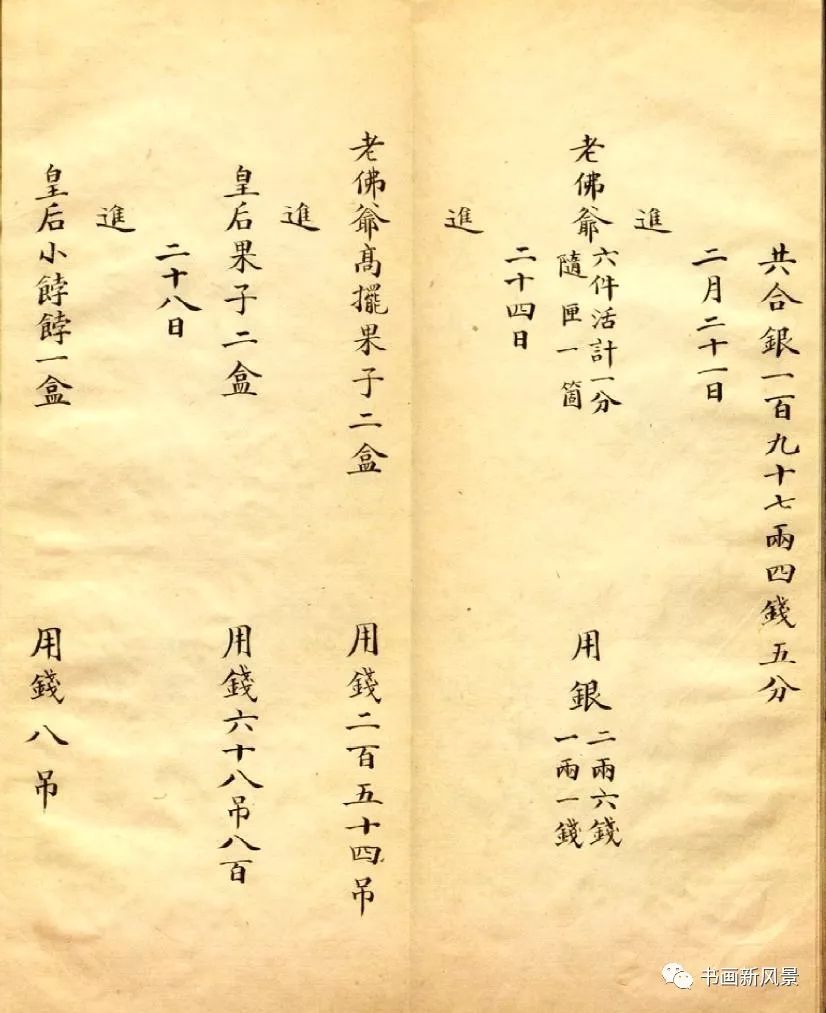 共合銀一百九十七兩四錢五分
二月二十一日
進
老佛爺六件活計一分
隨匣一箇
用銀二兩六錢
一兩一錢
二十四日
進
老佛爺高擺果子二盒 用錢二百五十四吊
進
皇后果子二盒 用錢六十八吊八百
二十八日
進
皇后小餑餑一盒 用錢八吊
书画新风景